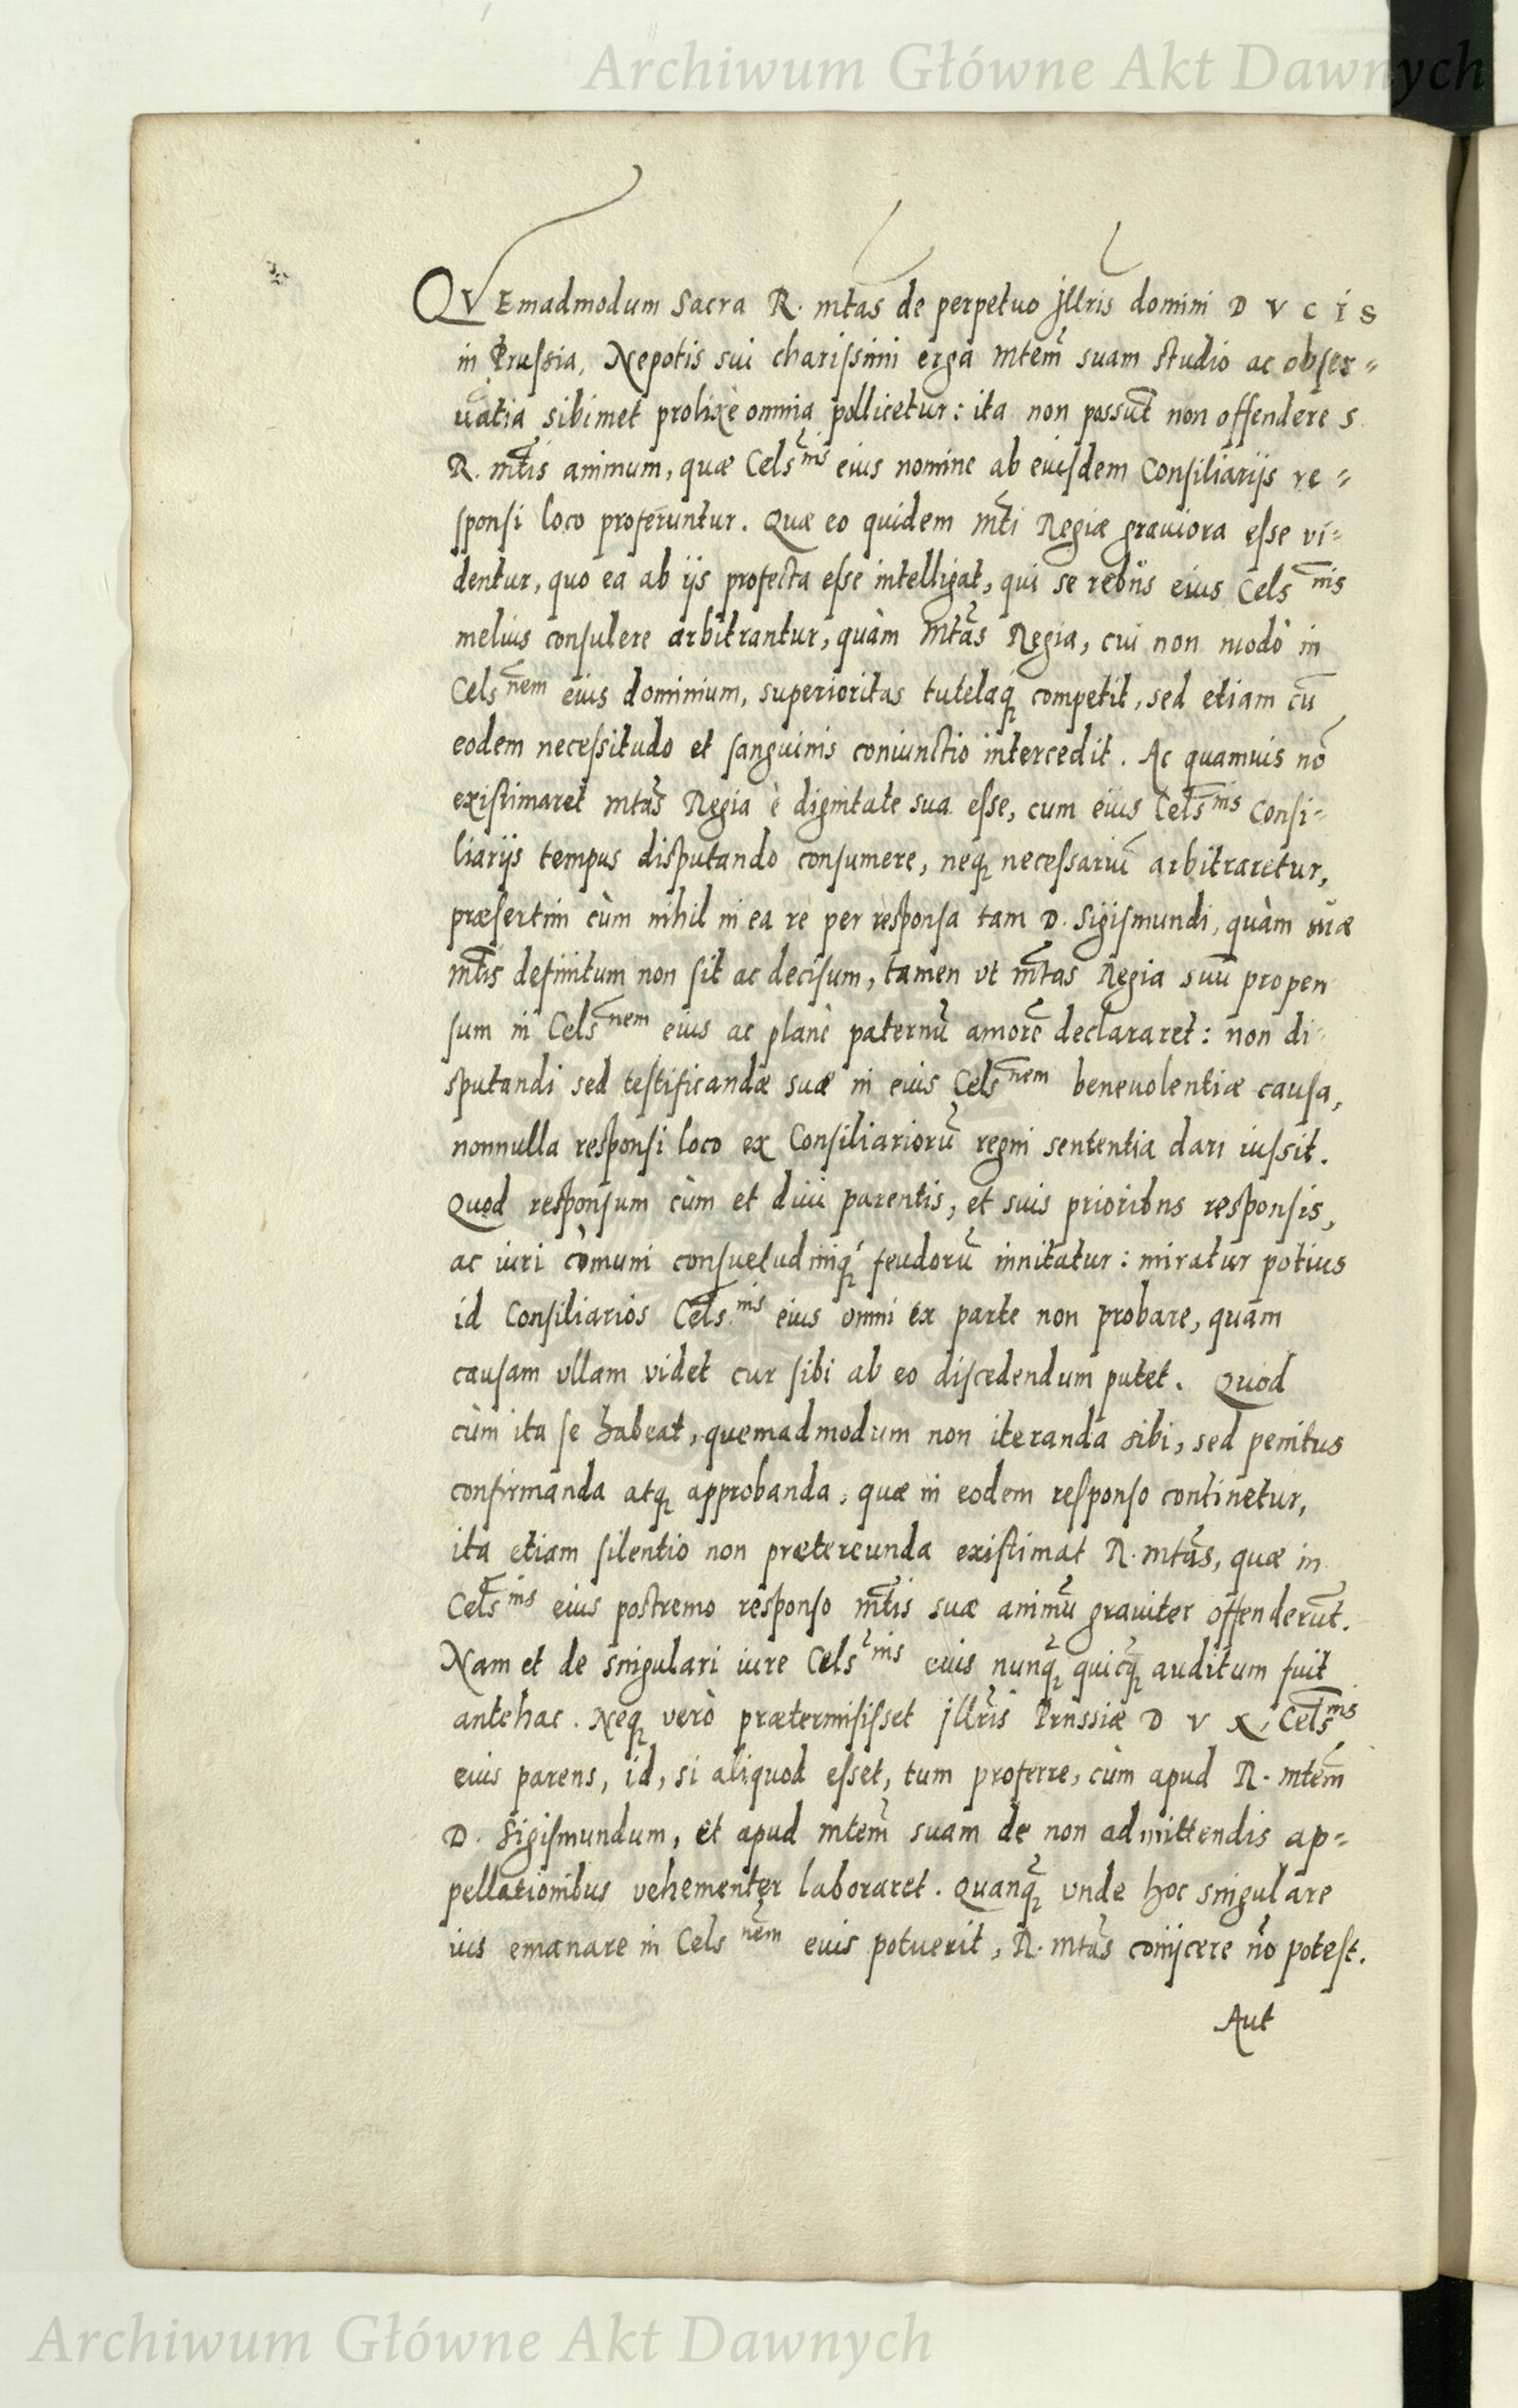 Archiwum Główne Akt Dawnych
QVEmadmodum Sacra R. mtas de perpetuo jllris domini D V C I S
in Prussia, Nepotis sui charissimi erga mtem suam studio ac obser=
uatia sibimet prolixè omnia pollicetur: ita non possut non offendere S
R. mtis animum, quæ Cels^nis eius nomine ab eiusdem Consiliarijs re=
sponsi loco proferuntur. Quæ eo quidem mti Regiæ grauiora esse vi=
dentur, quo ea ab ijs profecta esse intelligat, qui se rebus eius Cels^nis
melius consulere arbitrantur, quàm mtas Regia, cui non modò in
Cels^nem eius dominium, superioritas tutelaq́ competit, sed etiam cū
eodem necessitudo et sanguinis coniunctio intercedit. Ac quamuis nō
existimaret mtas Regia è dignitate sua esse, cum eius Cels^nis Consi=
liarijs tempus disputando consumere, neq necessariū arbitraretur,
præsertim cùm nihil in ea re per responsa tam D. Sigismundi, quàm suæ
mtis definitum non sit ac decisum, tamen vt mtas Regia suū propen
sum in Cels^nem eius ac planè paternū amorē declararet: non di=
sputandi sed testificandæ suæ in eius Cels^nem beneuolentiæ causa,
nonnulla responsi loco ex Consiliariorū regni sententia dari iussit.
Quod responsum cùm et diui parentis, et suis prioribus responsis,
ac iuri cōmuni consuetudiniq́ feudorū innitatur: miratur potius
id Consiliarios Cels^nis eius omni ex parte non probare, quàm
causam vllam videt cur sibi ab eo discedendum putet. Quod
cùm ita se habeat, quemadmodum non iteranda sibi, sed penitus
confirmanda atq approbanda, quæ in eodem responso continetur,
ita etiam silentio non prætereunda existimat R. mtas, quæ in
Cels^nis eius postremo responso mtis suæ animū grauiter offenderūt.
Nam et de singulari iure Cels^nis eius nunq̄ quicq̄ auditum fuit
antehac. Neq verò prætermisisset jllris Prussiæ D V X, Cels^nis
eius parens, id, si aliquod esset, tum proferre, cùm apud R. mtem
D. Sigismundum, et apud mtem suam de non admittendis ap=
pellationibus vehementer laboraret. Quanq̄ vnde hoc singulare
ius emanare in Cels^nem eius potuerit, R. mtas conijcere nō potest.
Aut
Archiwum Główne Akt Dawnych